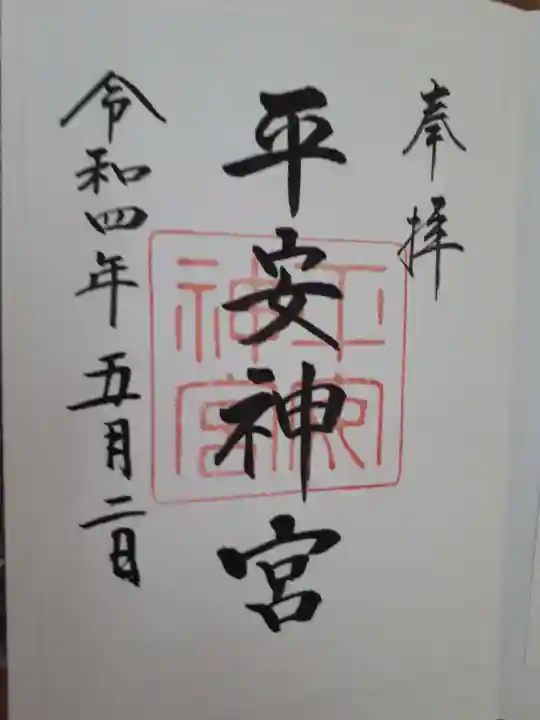 奉拝
平安神宮
平安神宮
令和四年五月二日